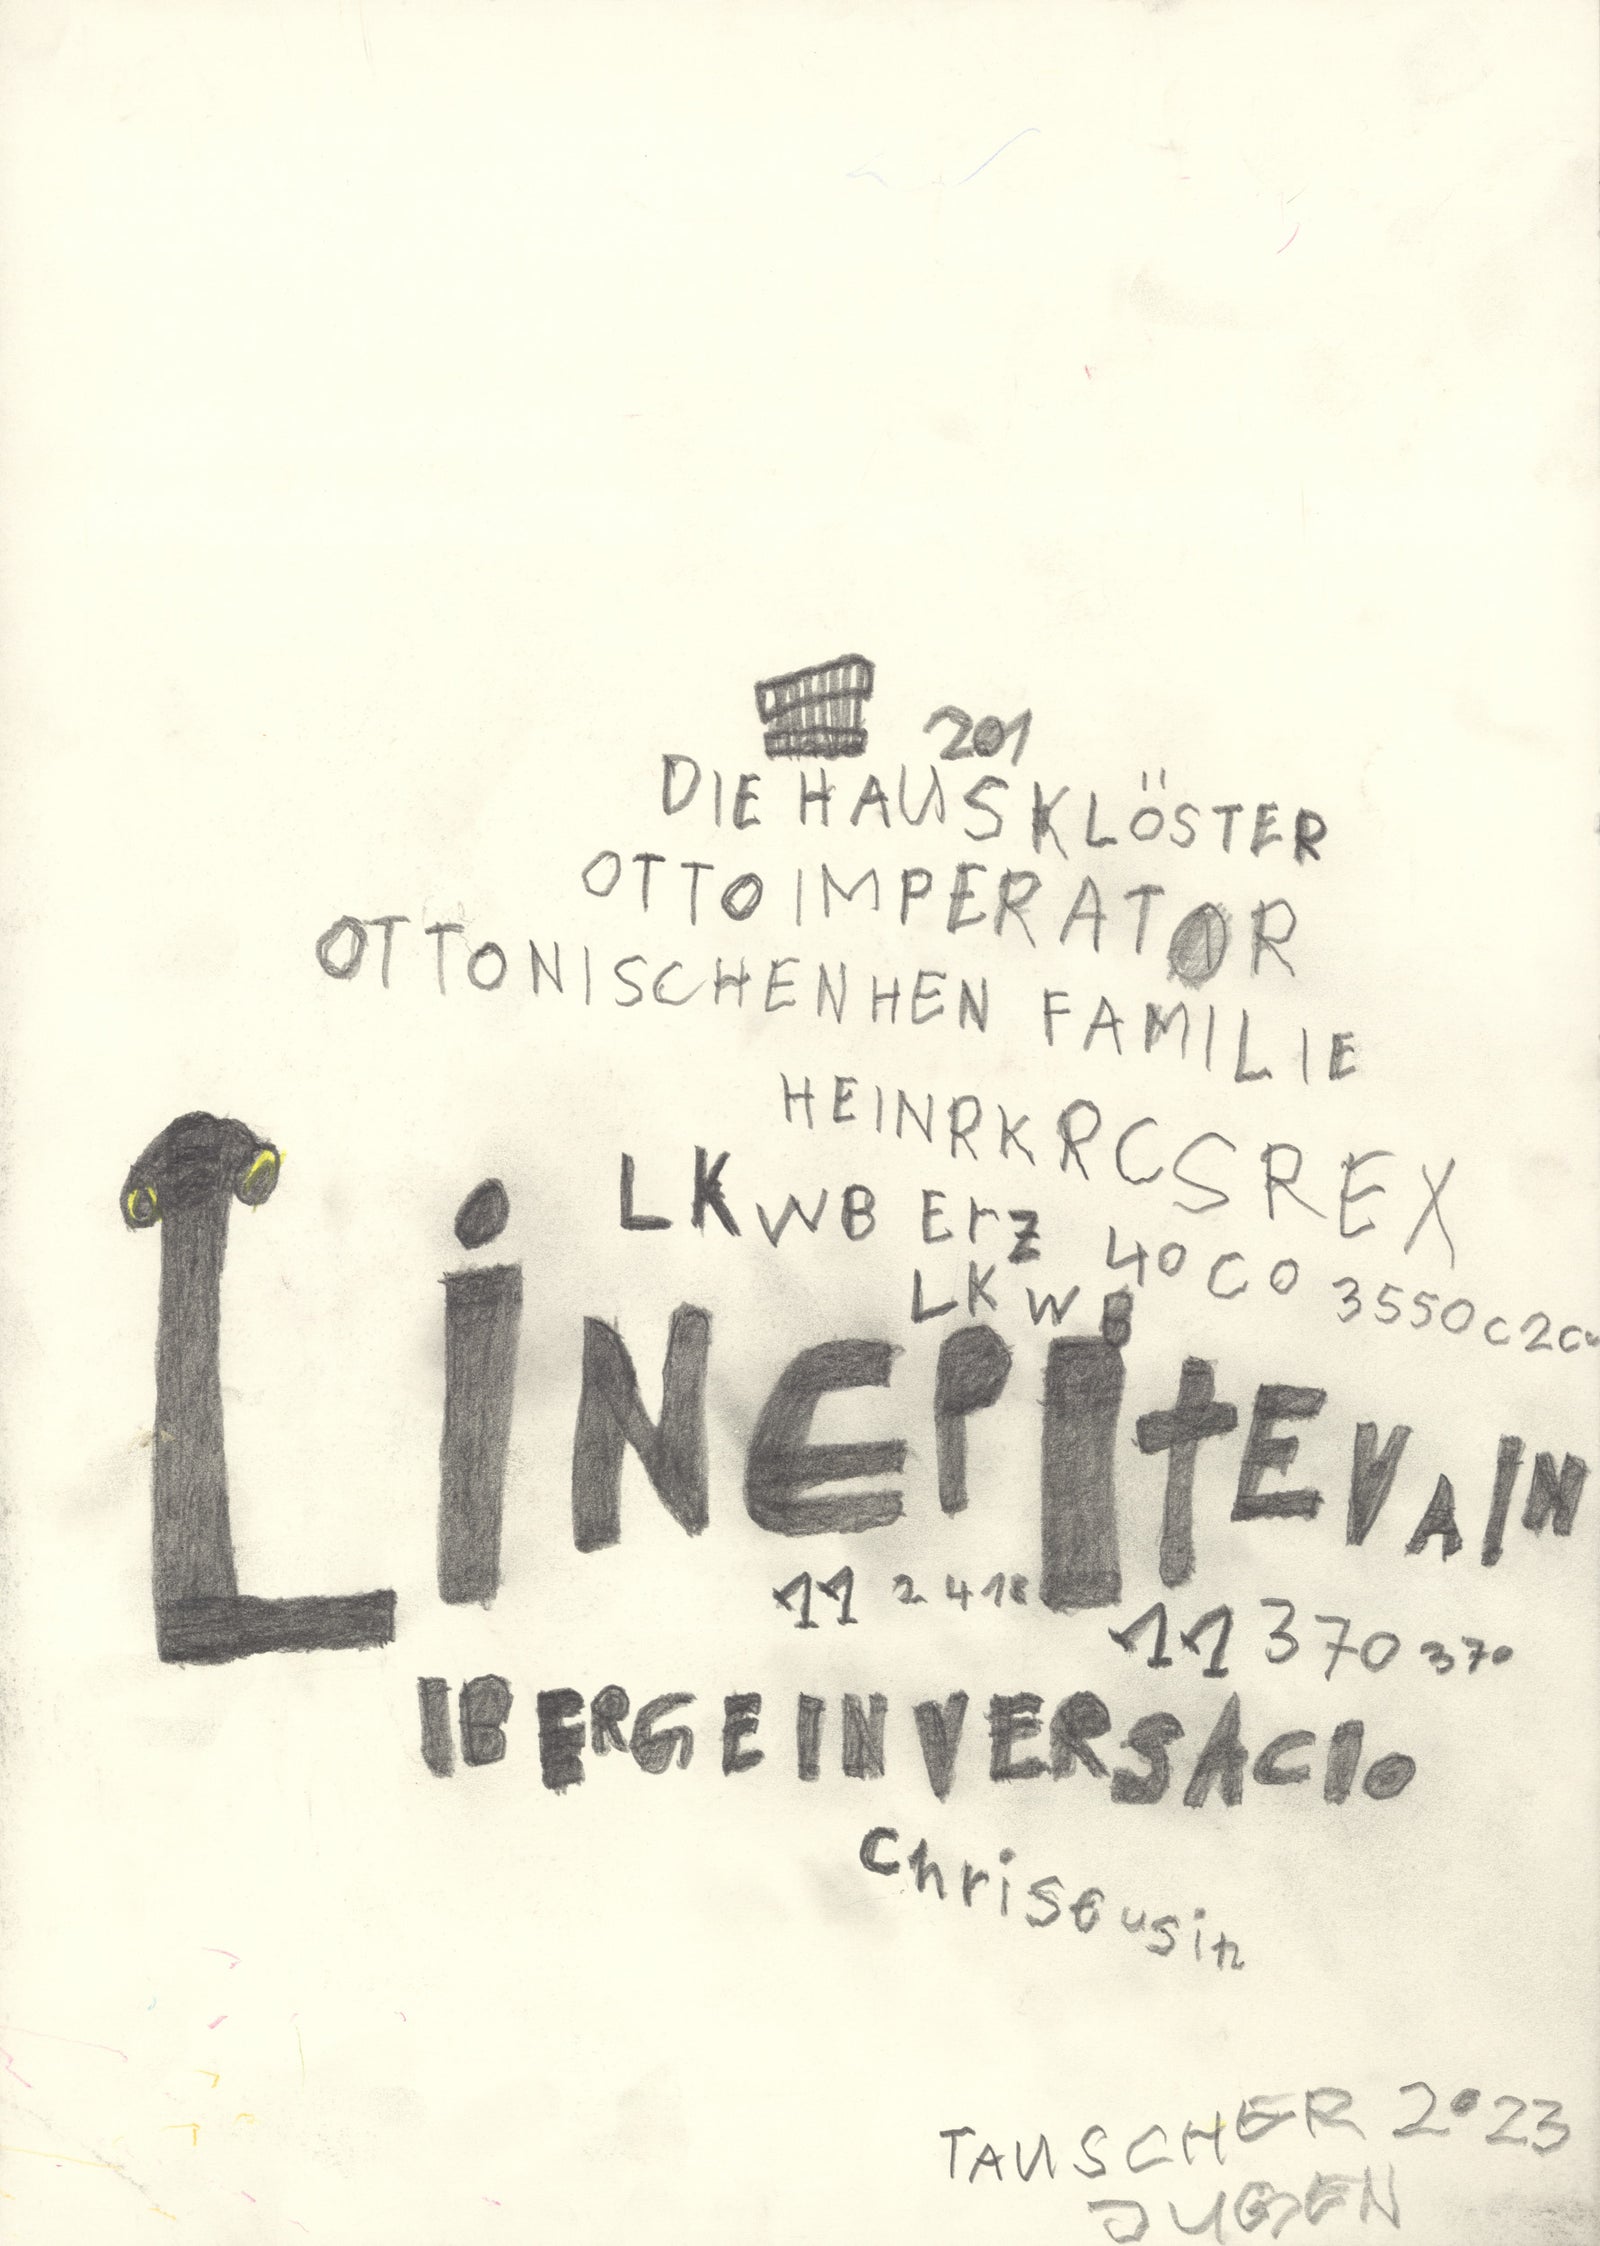 201
DIE HAUSKLÖSTER
OTTO IMPERATOR
OTTONISCHENHEN FAMILIE
HEINRKRCSREX
LKWB Erz 40 CO 3550C2C
LKWB
LiNEPITEVAIN
11 2418 11 370 370
IBERGEINVERSACIO
Chriseusin
TAUSCHER 2023
JUGEN